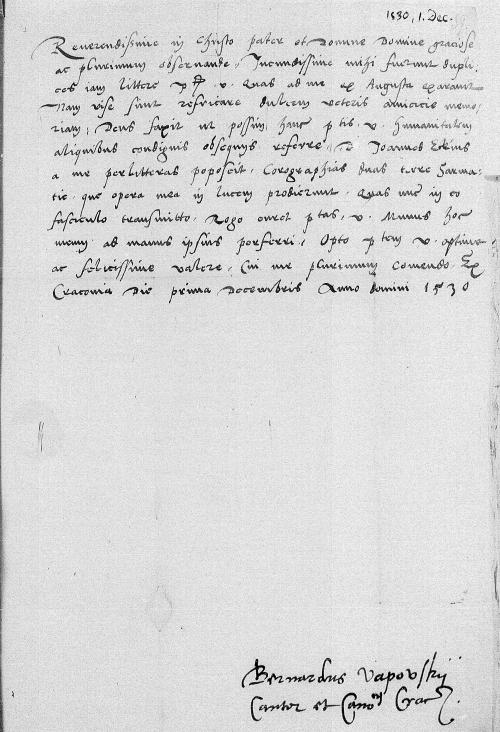 1530, 1. Dec.
Reverendissime in Christo pater et Domine Domine graciose
ac plurimum observande, Jucundissime mihi fuerunt dupli-
ces iam littere p. v. quas ad me ex Augusta exaravit
Nam vise sunt refricare dulcem veteris amicicie memo-
riam, Deus faxit ut possim hanc p tis. v. humanitatem
aliquibus condignis obsequiis referre. D Joannes Eckius
a me per litteras poposcit, Corographias duas terre Sarma-
tie, que opera mea in lucem prodierunt, quas nunc in eo
fasciculo transmitto. Rogo curet p tas. v. Munus hoc
meum ad manus ipsius perferri, Opto p tem v. optime
ac felicissime valere, Cui me plurimum comendo. Ex
Cracovia Die prima Decembris Anno domini 1530
Bernardus Vapovskij
Cantor et Cano Crac